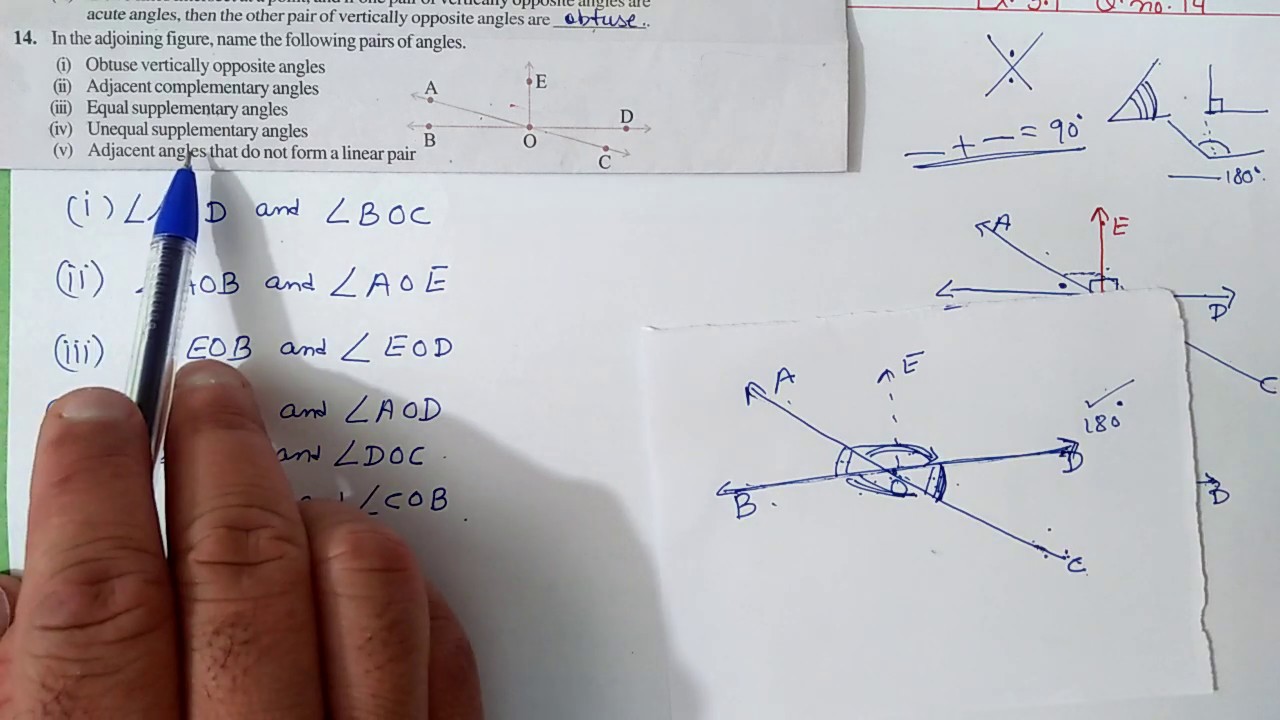 acute angles, then the other pair of vertically opposite angles are obtuse.
14. In the adjoining figure, name the following pairs of angles.
(i) Obtuse vertically opposite angles
(ii) Adjacent complementary angles
(iii) Equal supplementary angles
(iv) Unequal supplementary angles
(v) Adjacent angles that do not form a linear pair
A
E
B
O
D
C
(i) ∠ D and ∠BOC
(ii) AOB and ∠AOE
(iii) EOB and ∠EOD
and ∠AOD
and ∠DOC
∠COB
_ + _ = 90°
180°.
A
E
D
C
D
A
E
B
O
D
C
180°